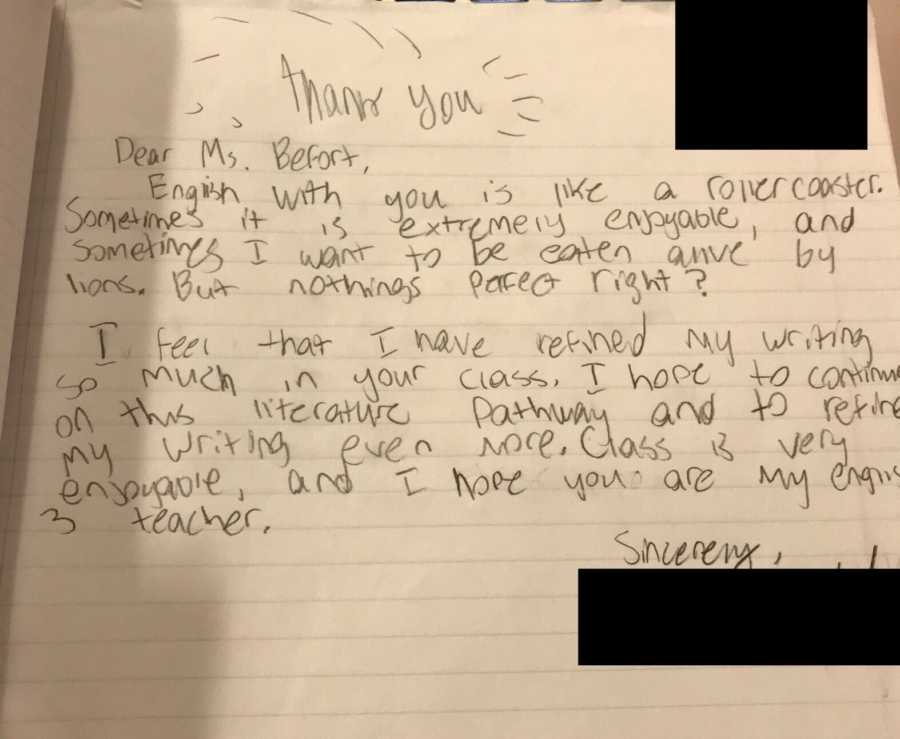 Thank you
Dear Ms. Befort,
English with you is like a rollercoaster.
Sometimes it is extremely enjoyable, and
sometimes I want to be eaten alive by
lions. But nothings perfect right?
I feel that I have refined my writing
so much in your class. I hope to continue
on this literature pathway and to refine
my writing even more. Class is very
enjoyable, and I hope you are my englis
3 teacher.
Sincerely,